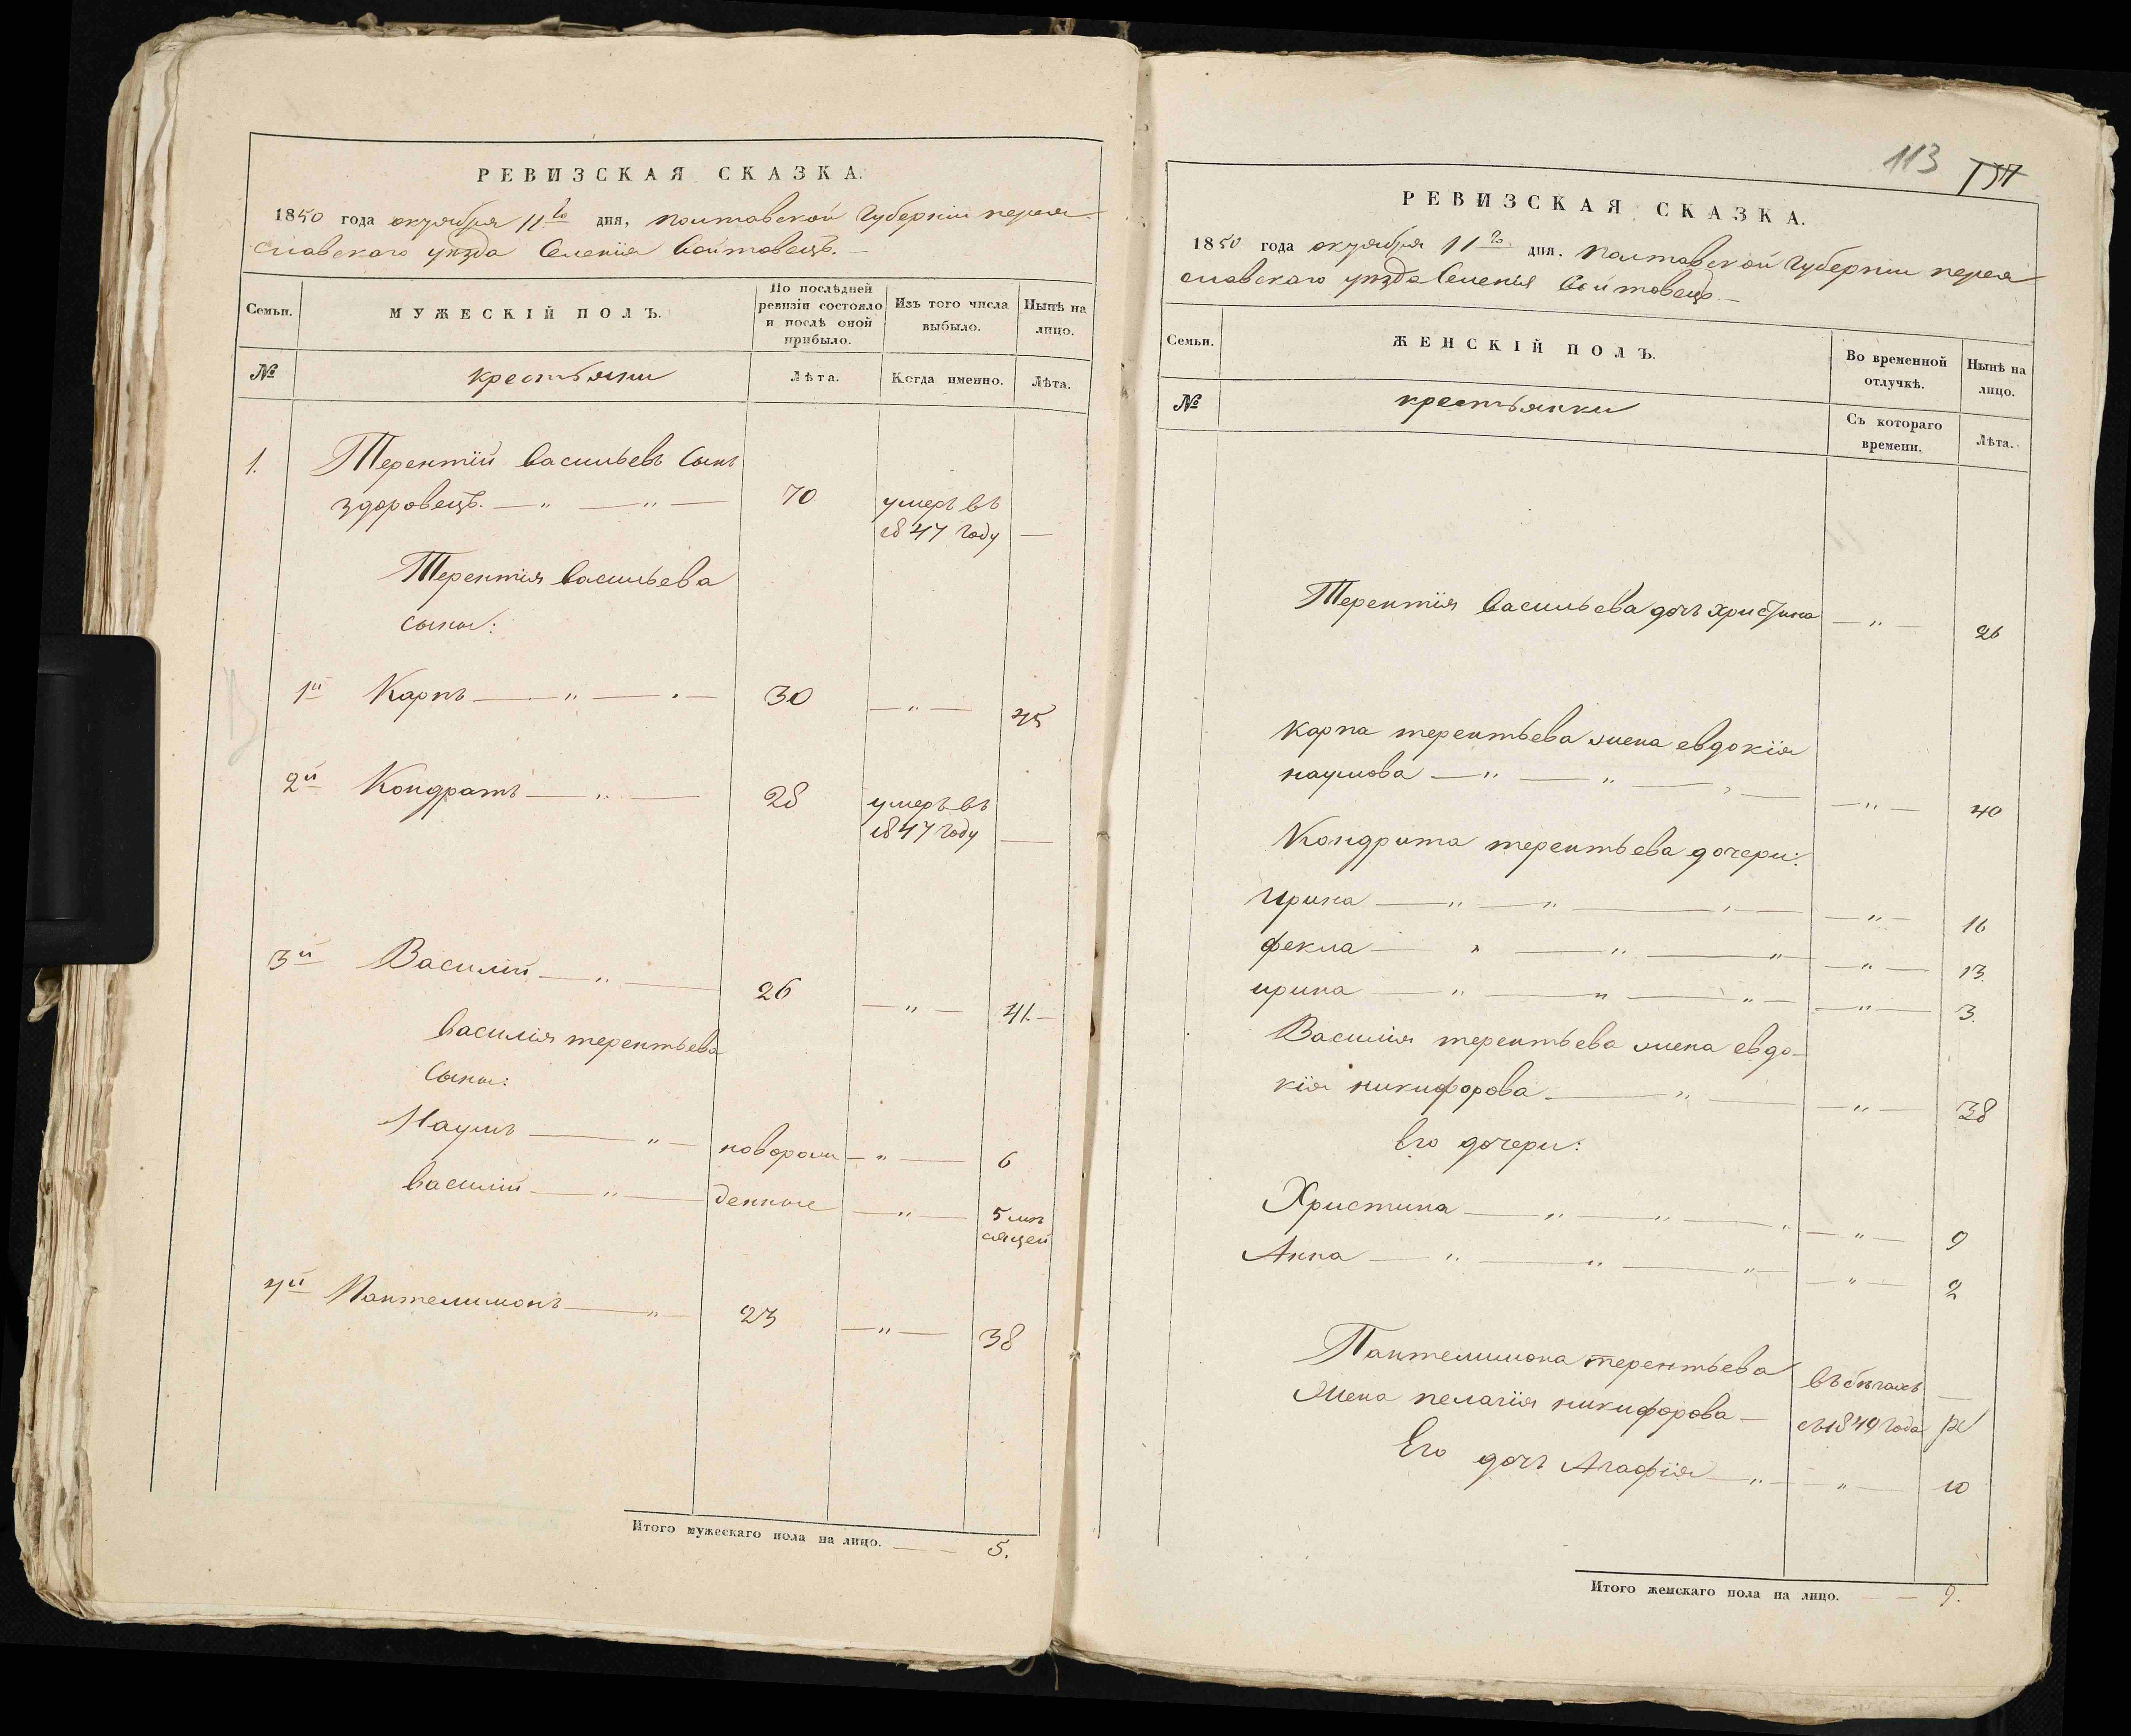 РЕВИЗСКАЯ СКАЗКА.
1850 года октября 11го дня, полтавской Губерніи перея
славскаго уѣзда Селенія Войтовецъ.
Семьи.
МУЖЕСКІЙ ПОЛЪ.
По послѣдней
ревизіи состояло
и послѣ оной
прибыло.
Изъ того числа
выбыло.
Нынѣ на
лицо.
№
крестьяни
Лѣта.
Когда именно.
Лѣта.
1. Терентій Васильевъ Сынъ
здоровецъ. — " — " — 70 умеръ въ
1847 году —
Терентія Васильева
сыны:
1й Карпъ — " — " — 30 — " — 45
2й Кондратъ — " — 28 умеръ въ
1847 году —
3й Василій — " — 26 — " — 41 —
Василія терентьева
Сыны:
Наумъ — " — новорож — " — 6
Василій — " — денные — " — 5 мѣ
сяцей
4й Пантелимонъ — " — 23 — " — 38
Итого мужескаго пола на лицо. — — 5.
113
РЕВИЗСКАЯ СКАЗКА.
1850 года октября 11го дня. полтавской Губерніи перея
славскаго уѣзда Селенія Войтовецъ. —
Семьи.
ЖЕНСКІЙ ПОЛЪ.
Во временной
отлучкѣ.
Нынѣ на
лицо.
№
крестьянки
Съ котораго
времени.
Лѣта.
Терентія Васильева дочъ христина — " — 26
Карпа терентьева жена евдокія
наумова — " — " — , — — " — 40
Кондрата терентьева дочери:
Ирина — " — " — " — — " — 16
фекла — " — " — " — — " — 13.
ирина — " — " — " — — " — 3.
Василія терентьева жена евдо-
кія никифорова — " — — " — 38
Его дочери:
Христина — " — " — " — " — 9
Анна — " — " — " — — " — 2
Пантелимона терентьева въ бѣгахъ —
Жена пелагія никифорова — съ 1849 года
Его дочъ Агафія — " — — " — 10
Итого женскаго пола на лицо. — — 9.